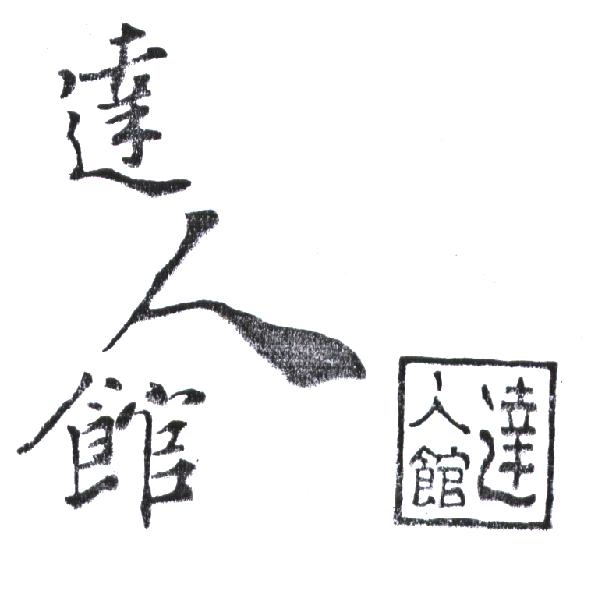 達人館
達人館